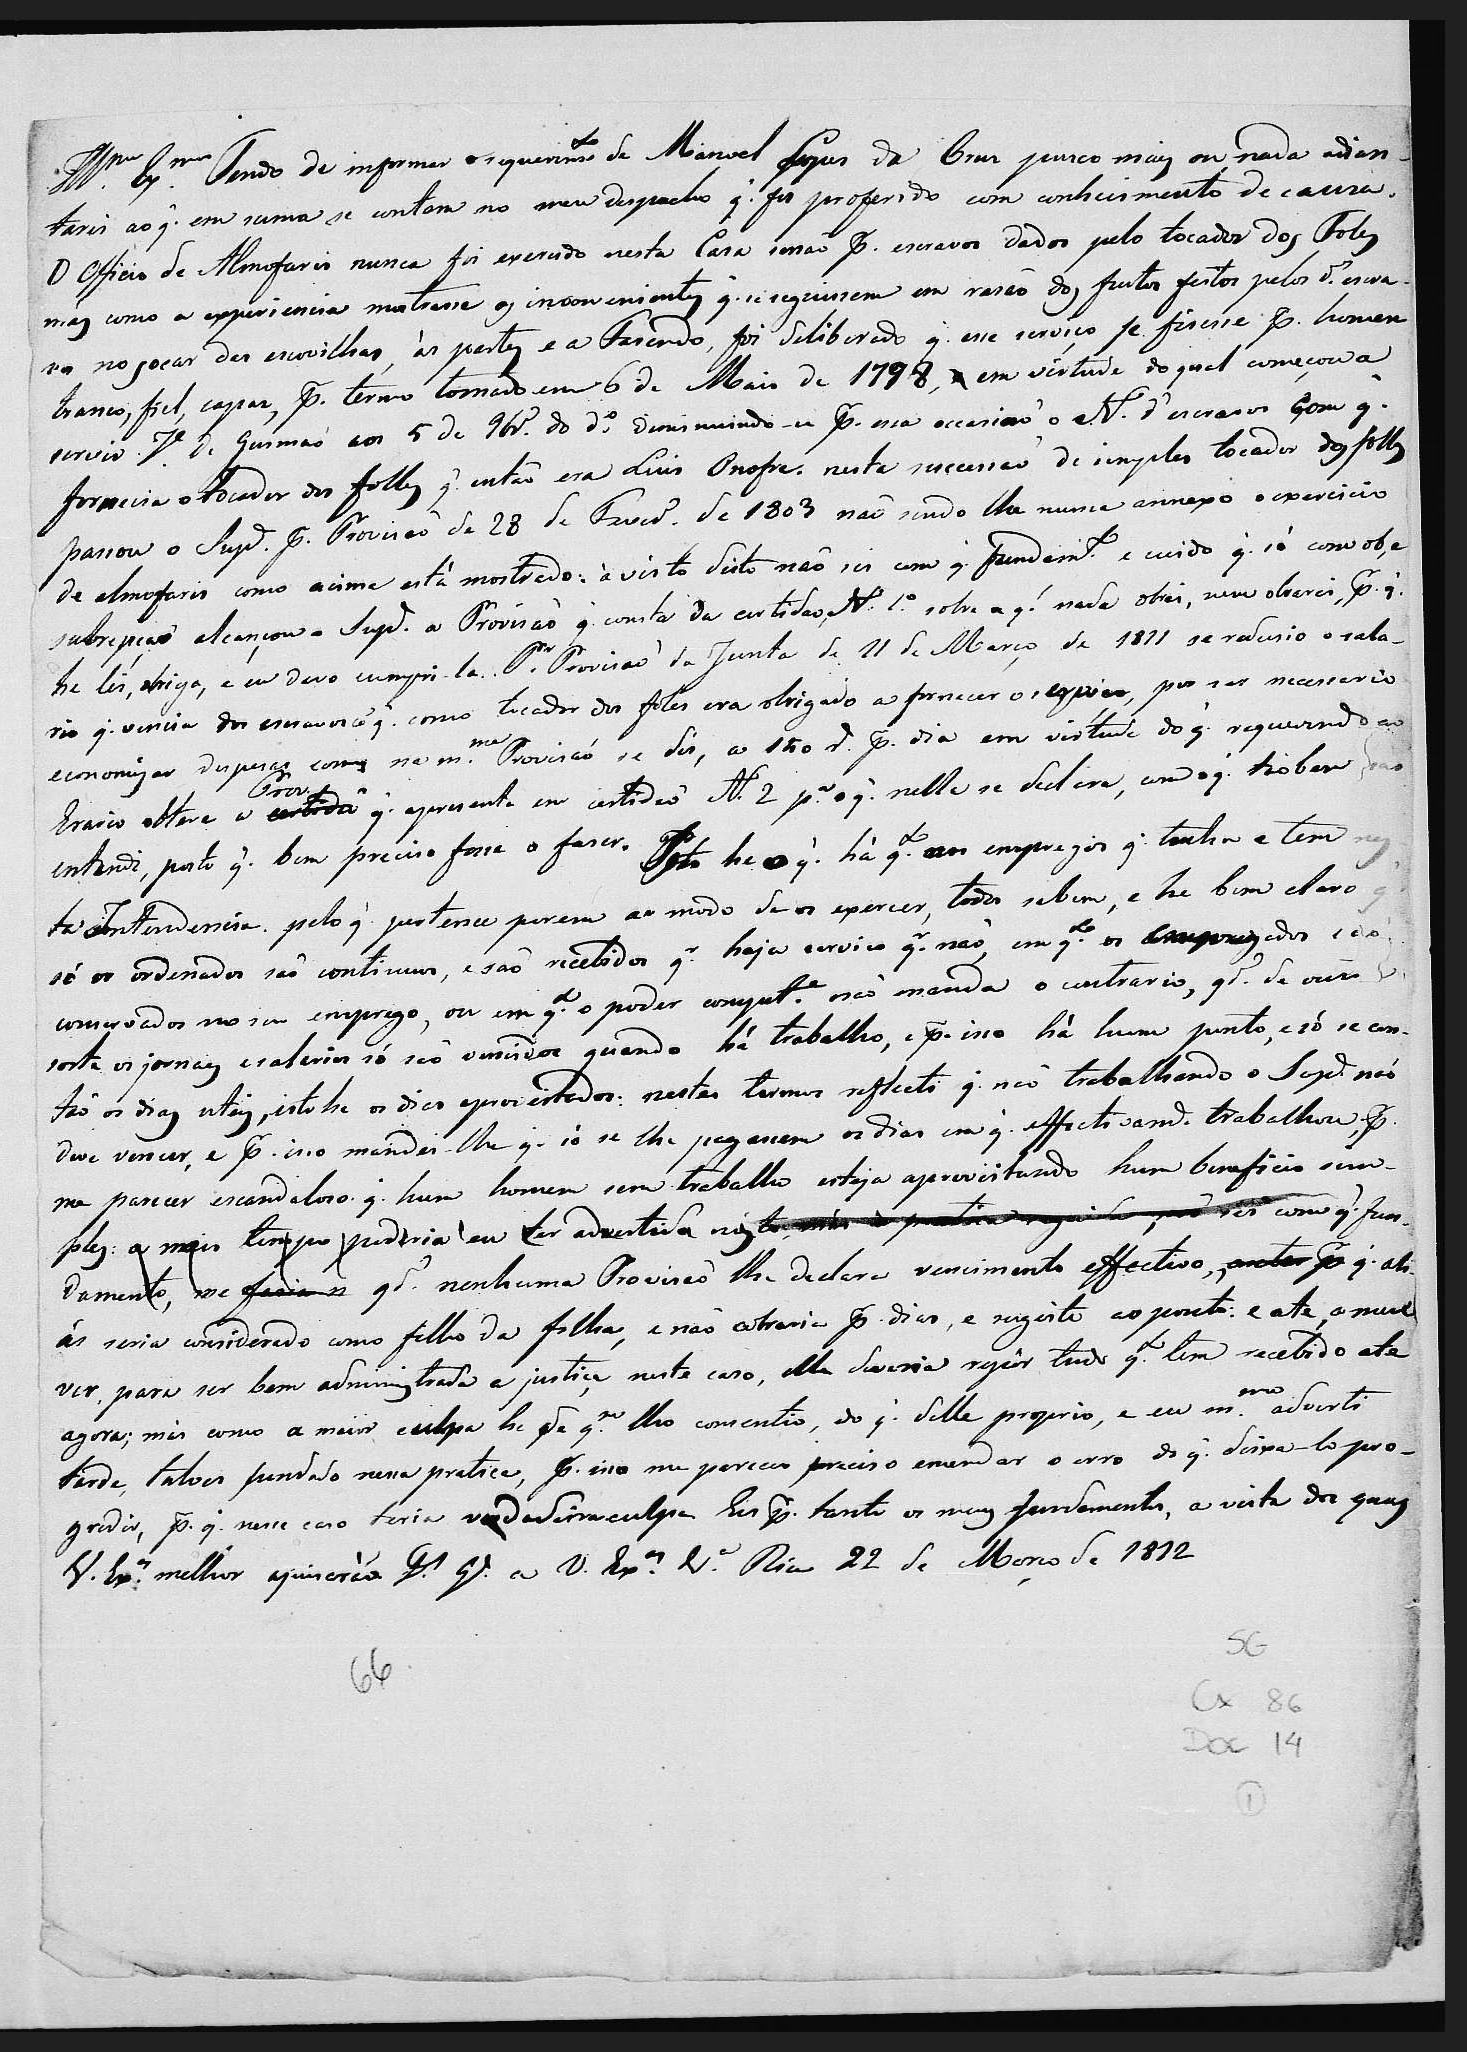 Illmo. Exmo. Tendo de informar o requerimto de Manoel Lopes da Cruz pouco mais ou nada adian-
tarei ao q. em suma se contem no meu despacho q. foi proferido com conhecimento de cauza.
O Officio de Almofariz nunca foi exercido nesta Casa senaõ p. escravos dados pelo tocador dos Foles
mas como a experiencia mostrasse os inconvenientes q. se seguissem em rasaõ dos furtos feitos pelos d.os escra-
vos no socar das escovilhas, ás partes e a Fasenda, foi deliberado q. esse serviço se fisesse p. homem
branco, fiel, capaz, p. termo tomado em 6 de Maio de 1798, em virtude do qual começou a
servir Je. de Gusmaõ aos 5 de 9br.o do d.o diminuindo-se p. essa occasiaõ o N.o d'escravos com q.
fornecia o tocador dos folles q. entaõ era Luis Onofre. nesta sucessaõ de simples tocador dos folles
passou o Supe. p. Provisaõ de 28 de Fever.o de 1803 naõ sendo lhe nunca annexo o exercicio
de almofaris como acima está mostrado: á vista disto naõ sei com q. fundamto. e cuido q. só com ob, e
subrepçaõ alcançou o Supe. a Provisaõ q. consta da certidaõ N.o 1.o sobre a q. nada obrei, nem obrarei, p. q.
he lei, obriga, e eu devo cumpri-la. Por Provisaõ da Junta de 21 de Março de 1811 se redusio o sala-
rio q. vencia dos escravos q. como tocador dos foles era obrigado a fornecer o serviço, por ser necessario
economizar despesas como na m.ma Provisaõ se diz, a 150 r. p. dia em virtude do q. requerendo ao
Erario obteve a certidaõ Prov. q. apresenta em certidaõ N. 2 p.a o q. nella se declara, com o q. taõbem
entendi, posto q. bem preciso fosse o faser. Isto he o q. há q.to aos empregos q. tinha e tem nes-
ta Intendencia. pelo q. pertence porem ao modo de os exercer, todos sabem, e he bem claro q.
só os ordenados saõ continuos, e saõ recebidos q.r haja serviço q.r naõ, em q.to os empregados saõ
conservados no seu emprego, ou em q.to o poder compet.e naõ manda o contrario, q.do de outra
sorte os jornaes e salarios só saõ vencidos quando há trabalho, e p. isso há hum ponto, e só se con-
taõ os dias uteis, isto he os dias aproveitados: nestes termos reflecti q. naõ trabalhando o Supe. naõ
deve vencer, e p. isso mandei-lhe q. só se lhe pagassem os dias em q. effectivam.e trabalhou, p.
me parecer escandaloso q. hum homem sem trabalho esteja aproveitando hum beneficio sim-
ples: a mais tempo poderia eu ter advertido nisto, mas a pratica seguida, naõ sei com q. fun-
damento, me fasia q.do nenhuma Provisaõ lhe declara vencimento effectivo, q. ali-
ás seria considerado como filho da folha, e naõ cobraria p. dias, e sugeito ao ponto: e ate, a meu
ver, para ser bem administrada a justiça neste caso, elle deveria repôr tudo q.to tem recebido ate
agora; mas como a maior culpa he de q.m lho consentio, do q. delle proprio, e eu m.mo adverti
tarde, talvez fundado nessa pratica, p. isso me pareceo preciso emendar o erro do q. deixa-lo pro-
gredir, p. q. nesse caso teria verdadeira culpa. Eis p. tanto os meus fundamentos, a vista dos quaes
V. Ex.a melhor ajuisará. Ds. Ge. a V. Ex.a Rio 22 de Março de 1812
66
SG
Cx 86
Doc 14
1